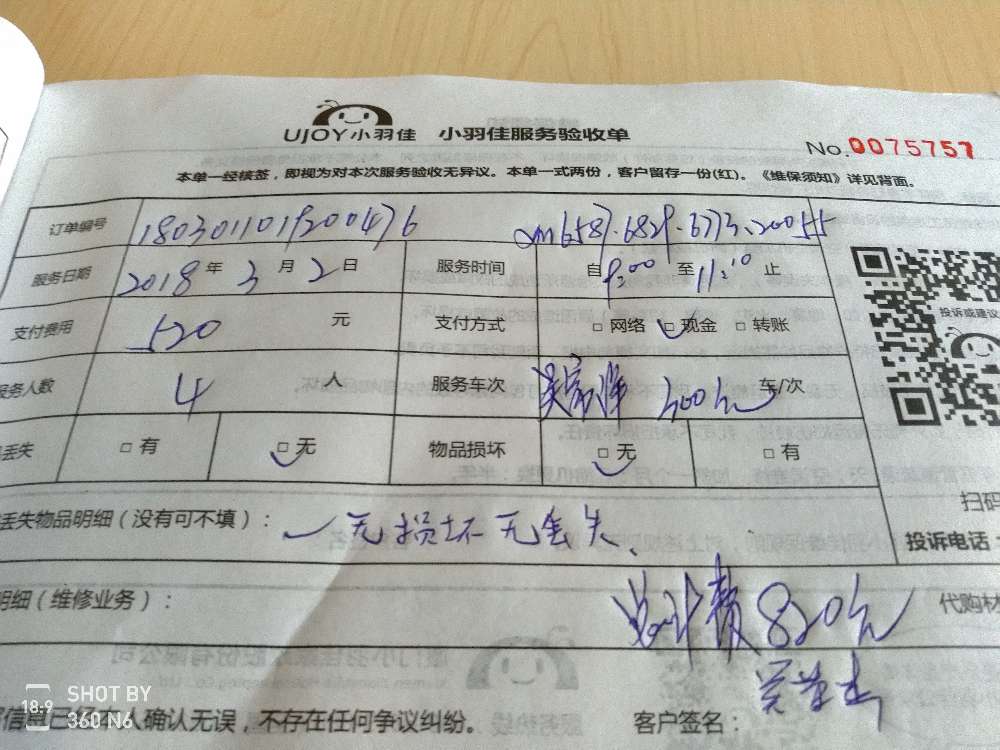 UJOY小羽佳 小羽佳服务验收单
No.0075757
本单一经核签，即视为对本次服务验收无异议。本单一式两份，客户留存一份(红)。《维保须知》详见背面。
订单编号
服务日期 2018年3月2日 服务时间 自9:00至11:10止
投诉或建议
支付费用 520 元 支付方式 □网络 □现金 □转账
服务人数 4 人 服务车次 300元 车/次
丢失 □有 □无 物品损坏 □无 □有
扫码
丢失物品明细（没有可不填）： 无损坏无丢失、
投诉电话
明细（维修业务）： 总计费820元 代购材
信息已经本人确认无误，不存在任何争议纠纷。 客户签名：
SHOT BY
360 N6
18:9